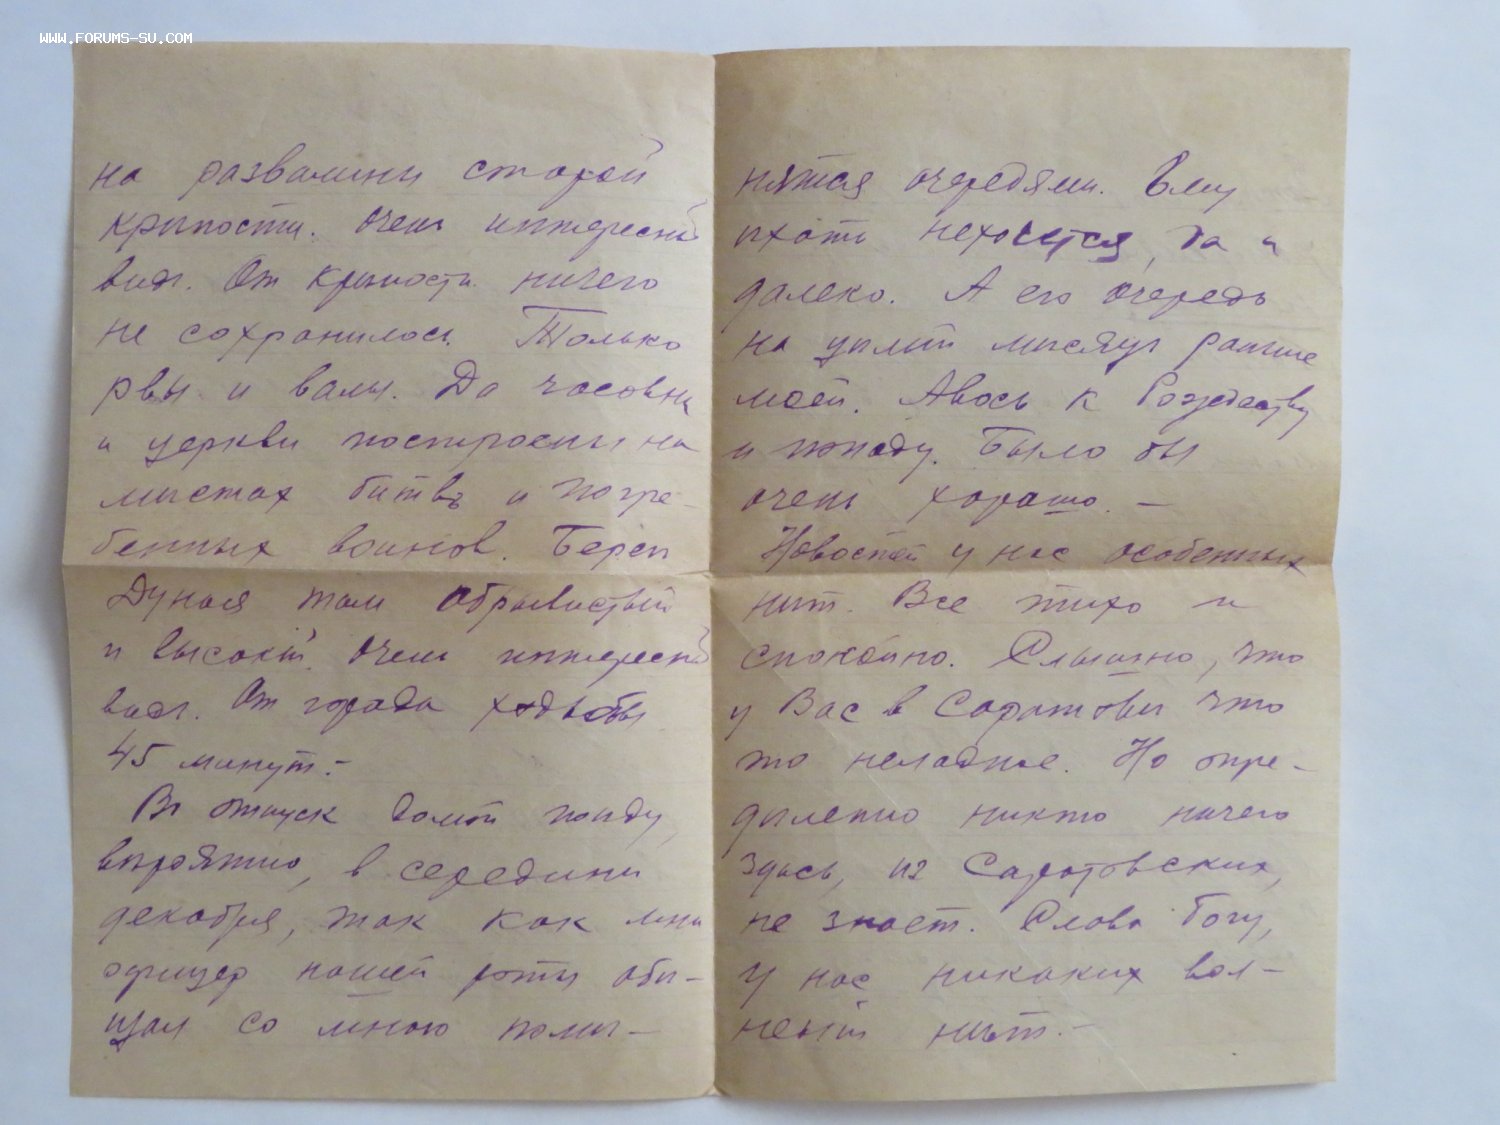 WWW.FORUMS-SU.COM
на развалины старой
крѣпости. Очень интересный
видъ. От крѣпости ничего
не сохранилось. Только
рвы и валы. Да часовни
и церкви построены на
мѣстах битвъ и погре-
бенных воинов. Берег
Дуная там обрывистый
и высокій. Очень интересный
видъ. От города ходьбы
45 минут.-
Въ отпуск домой поѣду,
вѣроятно, в середине
декабря, так как мнѣ
офицер нашей роты обѣ-
щал со мною помѣ-
няться очередями. Ему
ѣхать нехочется, да и
далеко. А его очередь
на цѣлый мѣсяцъ раньше
моей. Авось к Рождеству
и поѣду. Было бы
очень хорошо. -
Новостей у нас особенных
нѣт. Все тихо и
спокойно. Слышно, что
у Вас в Саратовѣ что
то неладное. Но опре-
дѣленно никто ничего
здѣсь, из Саратовских,
не знает. Слава Богу,
у нас никаких вол-
неній нѣт.-